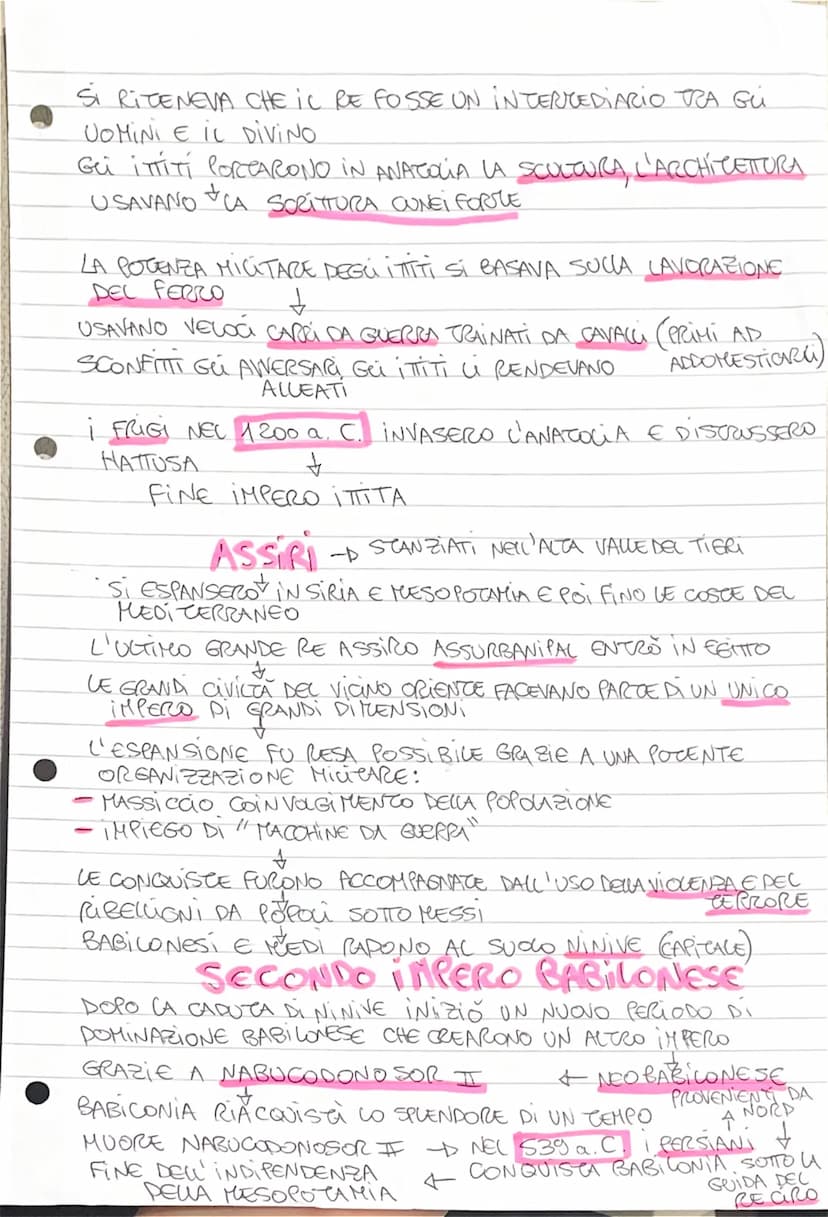 SI RITENEVA CHE IL RE FOSSE UN INTERMEDIARIO TRA GLI
UOMINI E IL DIVINO
GLI ITTITI PORTARONO IN ANATOLIA LA SCULTURA, L'ARCHITETTURA
USAVANO ↓ LA SCRITTURA CUNEIFORME
LA POTENZA MILITARE DEGLI ITTITI SI BASAVA SULLA LAVORAZIONE
DEL FERRO ↓
USAVANO VELOCI CARRI DA GUERRA TRAINATI DA CAVALLI (PRIMI AD
ADDOMESTICARLI)
SCONFITTI GLI AVVERSARI, GLI ITTITI LI RENDEVANO
ALLEATI
I FRIGI NEL 1200 a. C. INVASERO L'ANATOLIA E DISTRUSSERO
HATTUSA ↓
FINE IMPERO ITTITA
ASSIRI → STANZIATI NELL'ALTA VALLE DEL TIGRI
SI ESPANSERO ↓ IN SIRIA E MESOPOTAMIA E POI FINO LE COSTE DEL
MEDITERRANEO
L'ULTIMO GRANDE RE ASSIRO ASSURBANIPAL ENTRÒ IN EGITTO
↓
LE GRANDI CIVILTÀ DEL VICINO ORIENTE FACEVANO PARTE DI UN UNICO
IMPERO DI GRANDI DIMENSIONI
↓
L'ESPANSIONE FU RESA POSSIBILE GRAZIE A UNA POTENTE
ORGANIZZAZIONE MILITARE:
- MASSICCIO COINVOLGIMENTO DELLA POPOLAZIONE
- IMPIEGO DI "MACCHINE DA GUERRA"
↓
LE CONQUISTE FURONO ACCOMPAGNATE DALL'USO DELLA VIOLENZA E DEL
TERRORE
↓
RIBELLIONI DA POPOLI SOTTOMESSI
↓
BABILONESI E MEDI RADONO AL SUOLO NINIVE (CAPITALE)
SECONDO IMPERO BABILONESE
DOPO LA CADUTA DI NINIVE INIZIÒ UN NUOVO PERIODO DI
DOMINAZIONE BABILONESE CHE CREARONO UN ALTRO IMPERO
↓
GRAZIE A NABUCODONOSOR II ← NEOBABILONESE
↓
BABILONIA RIACQUISTÀ LO SPLENDORE DI UN TEMPO
PROVENIENTI DA
↑ NORD
MUORE NABUCODONOSOR II → NEL 539 a. C. I PERSIANI ↓
CONQUISTA BABILONIA SOTTO LA
GUIDA DEL
RE CIRO
FINE DELL'INDIPENDENZA ←
DELLA MESOPOTAMIA